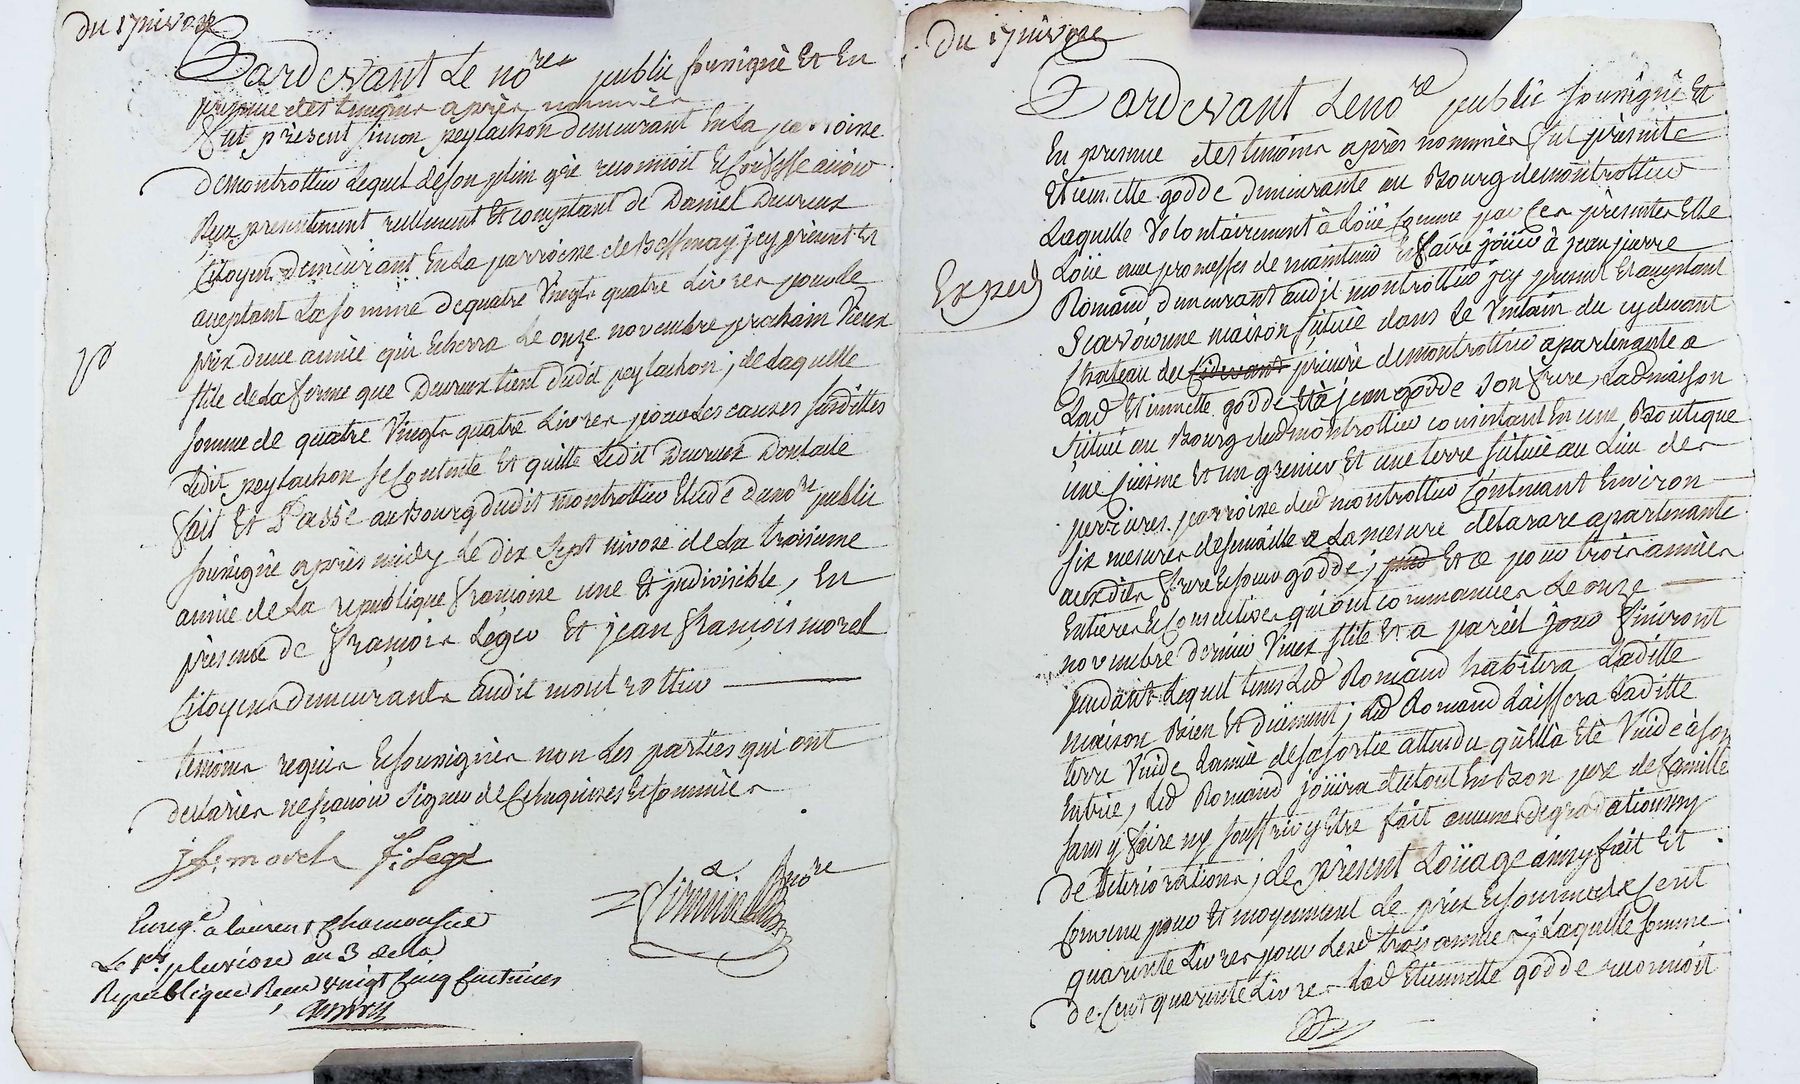 du 17 nivose
Pardevant Le no.re public sousigné Et En
presence des temoins après nommés
fut présent simon peylachon demeurant En La parroisse
de montrottier Lequel de son plein gré reconnoit Et Confesse avoir
Reçu presentement réellement Et comptant de Daniel Duvreux
Citoyen Demeurant En La parroisse de Bessenay jcy present Et
aceptant La somme de quatre Vingts quatre Livres pour le
prix d'une année qui Echerra Le onze novembre prochain Vieux
stile de La ferme que Duvreux tient dudit peylachon ; de laquelle
somme de quatre Vingts quatre Livres pour Les causes susdittes
Ledit peylachon se Contente Et quitte Ledit Duvreux Dont acte
fait Et Passé au Bourg dudit montrottier Etude du no.re public
sousigné après midy Le dix sept nivose de La troisieme
année de La republique françoise une Et jndivisible, En
présence de François Leger Et jean François morel
Citoyens demeurants audit montrottier
temoins requis Et sousignés non Les parties qui ont
declarées ne sçavoir signer de Ce Enquises Et sommées
j f: morel F: Leger
no.re
Enreg.é a laurent Chamousset
Le 1.er pluviose an 3 de la
Republique Reçu vingt Cinq Centimes
du 17 nivose
Pardevant Le no.re public sousigné Et
En presence des temoins après nommés fut présente
Etiennette godde demeurante au Bourg de montrottier
Laquelle Volontairement à Loüé Comme par Ces présentes Elle
Loüe avec promesses de maintenir Et faire joüir à jean pierre
Exped
Romand demeurant audit montrottier jcy present Et aceptant
Scavoir une maison située dans Le Vintain du cy devant
Chateau du Cidevant prieuré de montrottier apartenante a
Lad Etiennette godde Et à jean godde son frere, Lad maison
située au Bourg dud montrottier consistant En une Boutique
une Cuisine Et un grenier Et une terre située au Lieu des
perrieres parroisse dud montrottier Contenant Environ
six mesures de semaille a La mesure de tarare apartenante
auxdits frere Et sœur godde ; Et ce pour trois années
Entieres Et Consecutives qui ont commancées Le onze
novembre dernier Vieux stile Et a pareil jour finiront
pendant Lequel tems Led Romand habitera Laditte
maison Bien Et düement ; Led Romand Laissera Laditte
terre Vuide L'année de sa sortie attendu qu'Ella Eté Vuide à son
Entrée, Led Romand joüira du tout En Bon pere de famille
sans y faire ny souffrir y Etre fait aucunes degradations ny
deteriorations ; Le présent Loüage ainsy fait Et
Convenu pour Et moyennant Le prix Et somme de Cent
quarante Livres pour Lesd trois années ; Laquelle somme
de Cent quarante Livres Lad Etiennette godde reconnoit